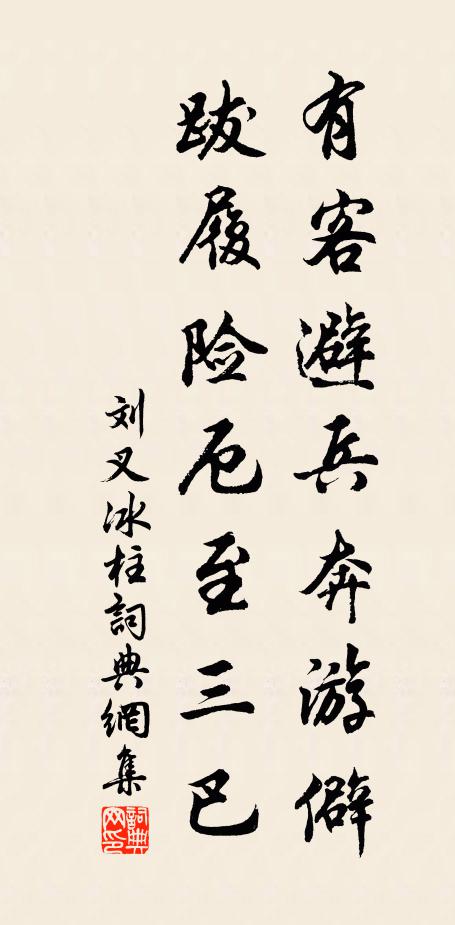 有客避兵奔游僻
跋履险厄至三巴
刘叉冰柱詞典網集
詞典网印